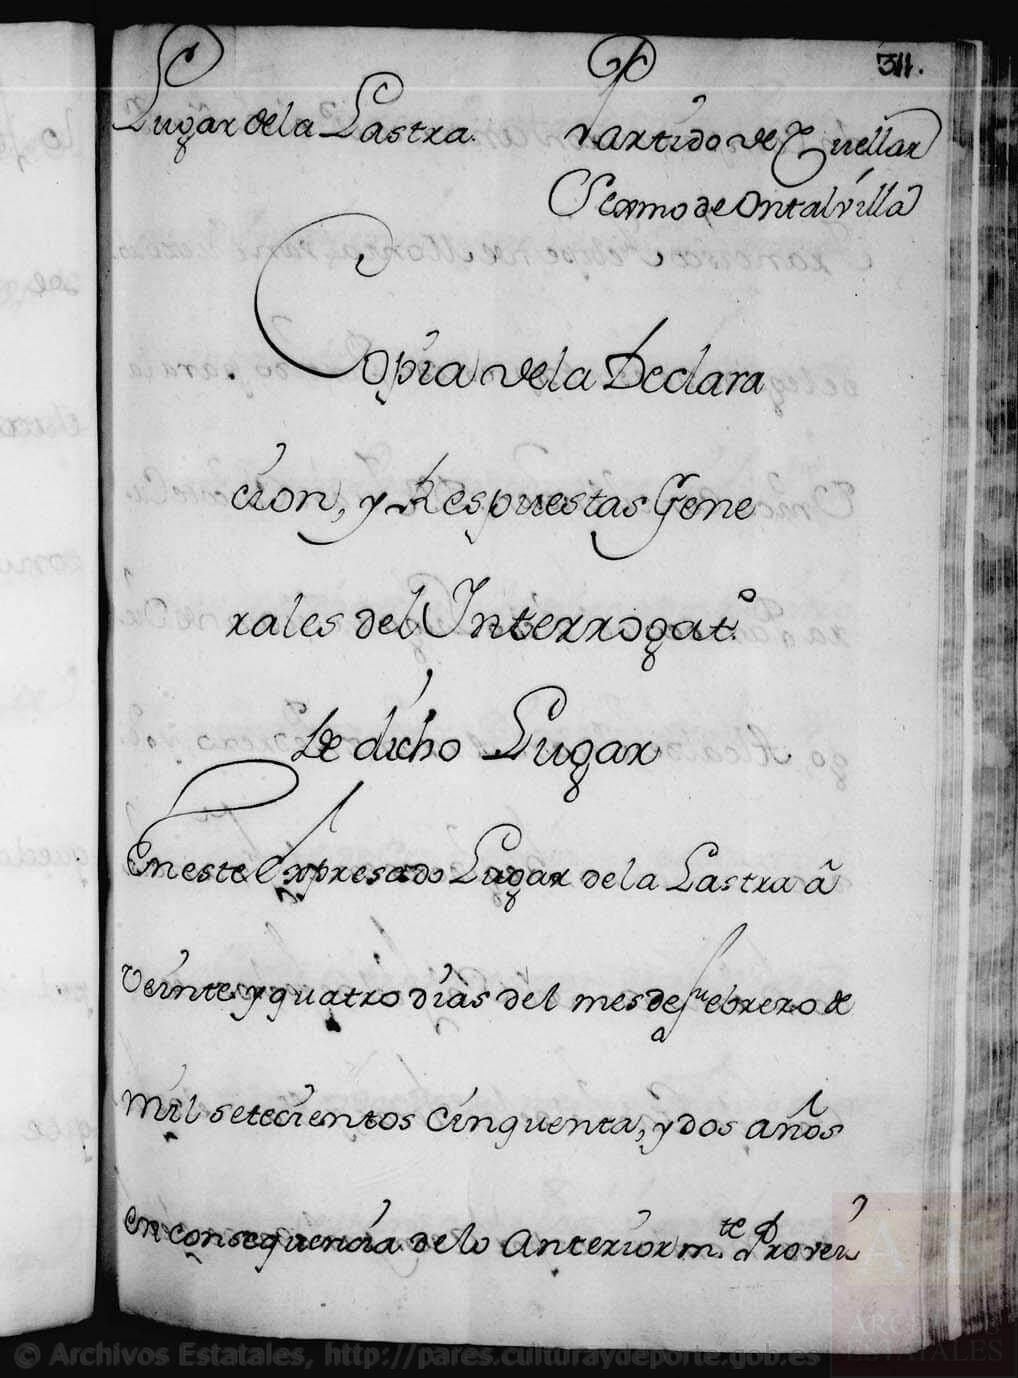 311.
Lugar dela Lastra.
Partido de Cuellar
Sexmo de Ontalvilla
Copia dela Declara
cion, y Respuestas Gene
rales del Interrogat.º
De dicho Lugar
En este Expresado Lugar dela Lastra â
Veinte y quatro dias del mes de Febrero de
mil setecientos cinquenta, y dos años
en consequencia delo anteriorm.te Provei
© Archivos Estatales, http://pares.culturaydeporte.gob.es
ARCHIVOS
ESTATALES